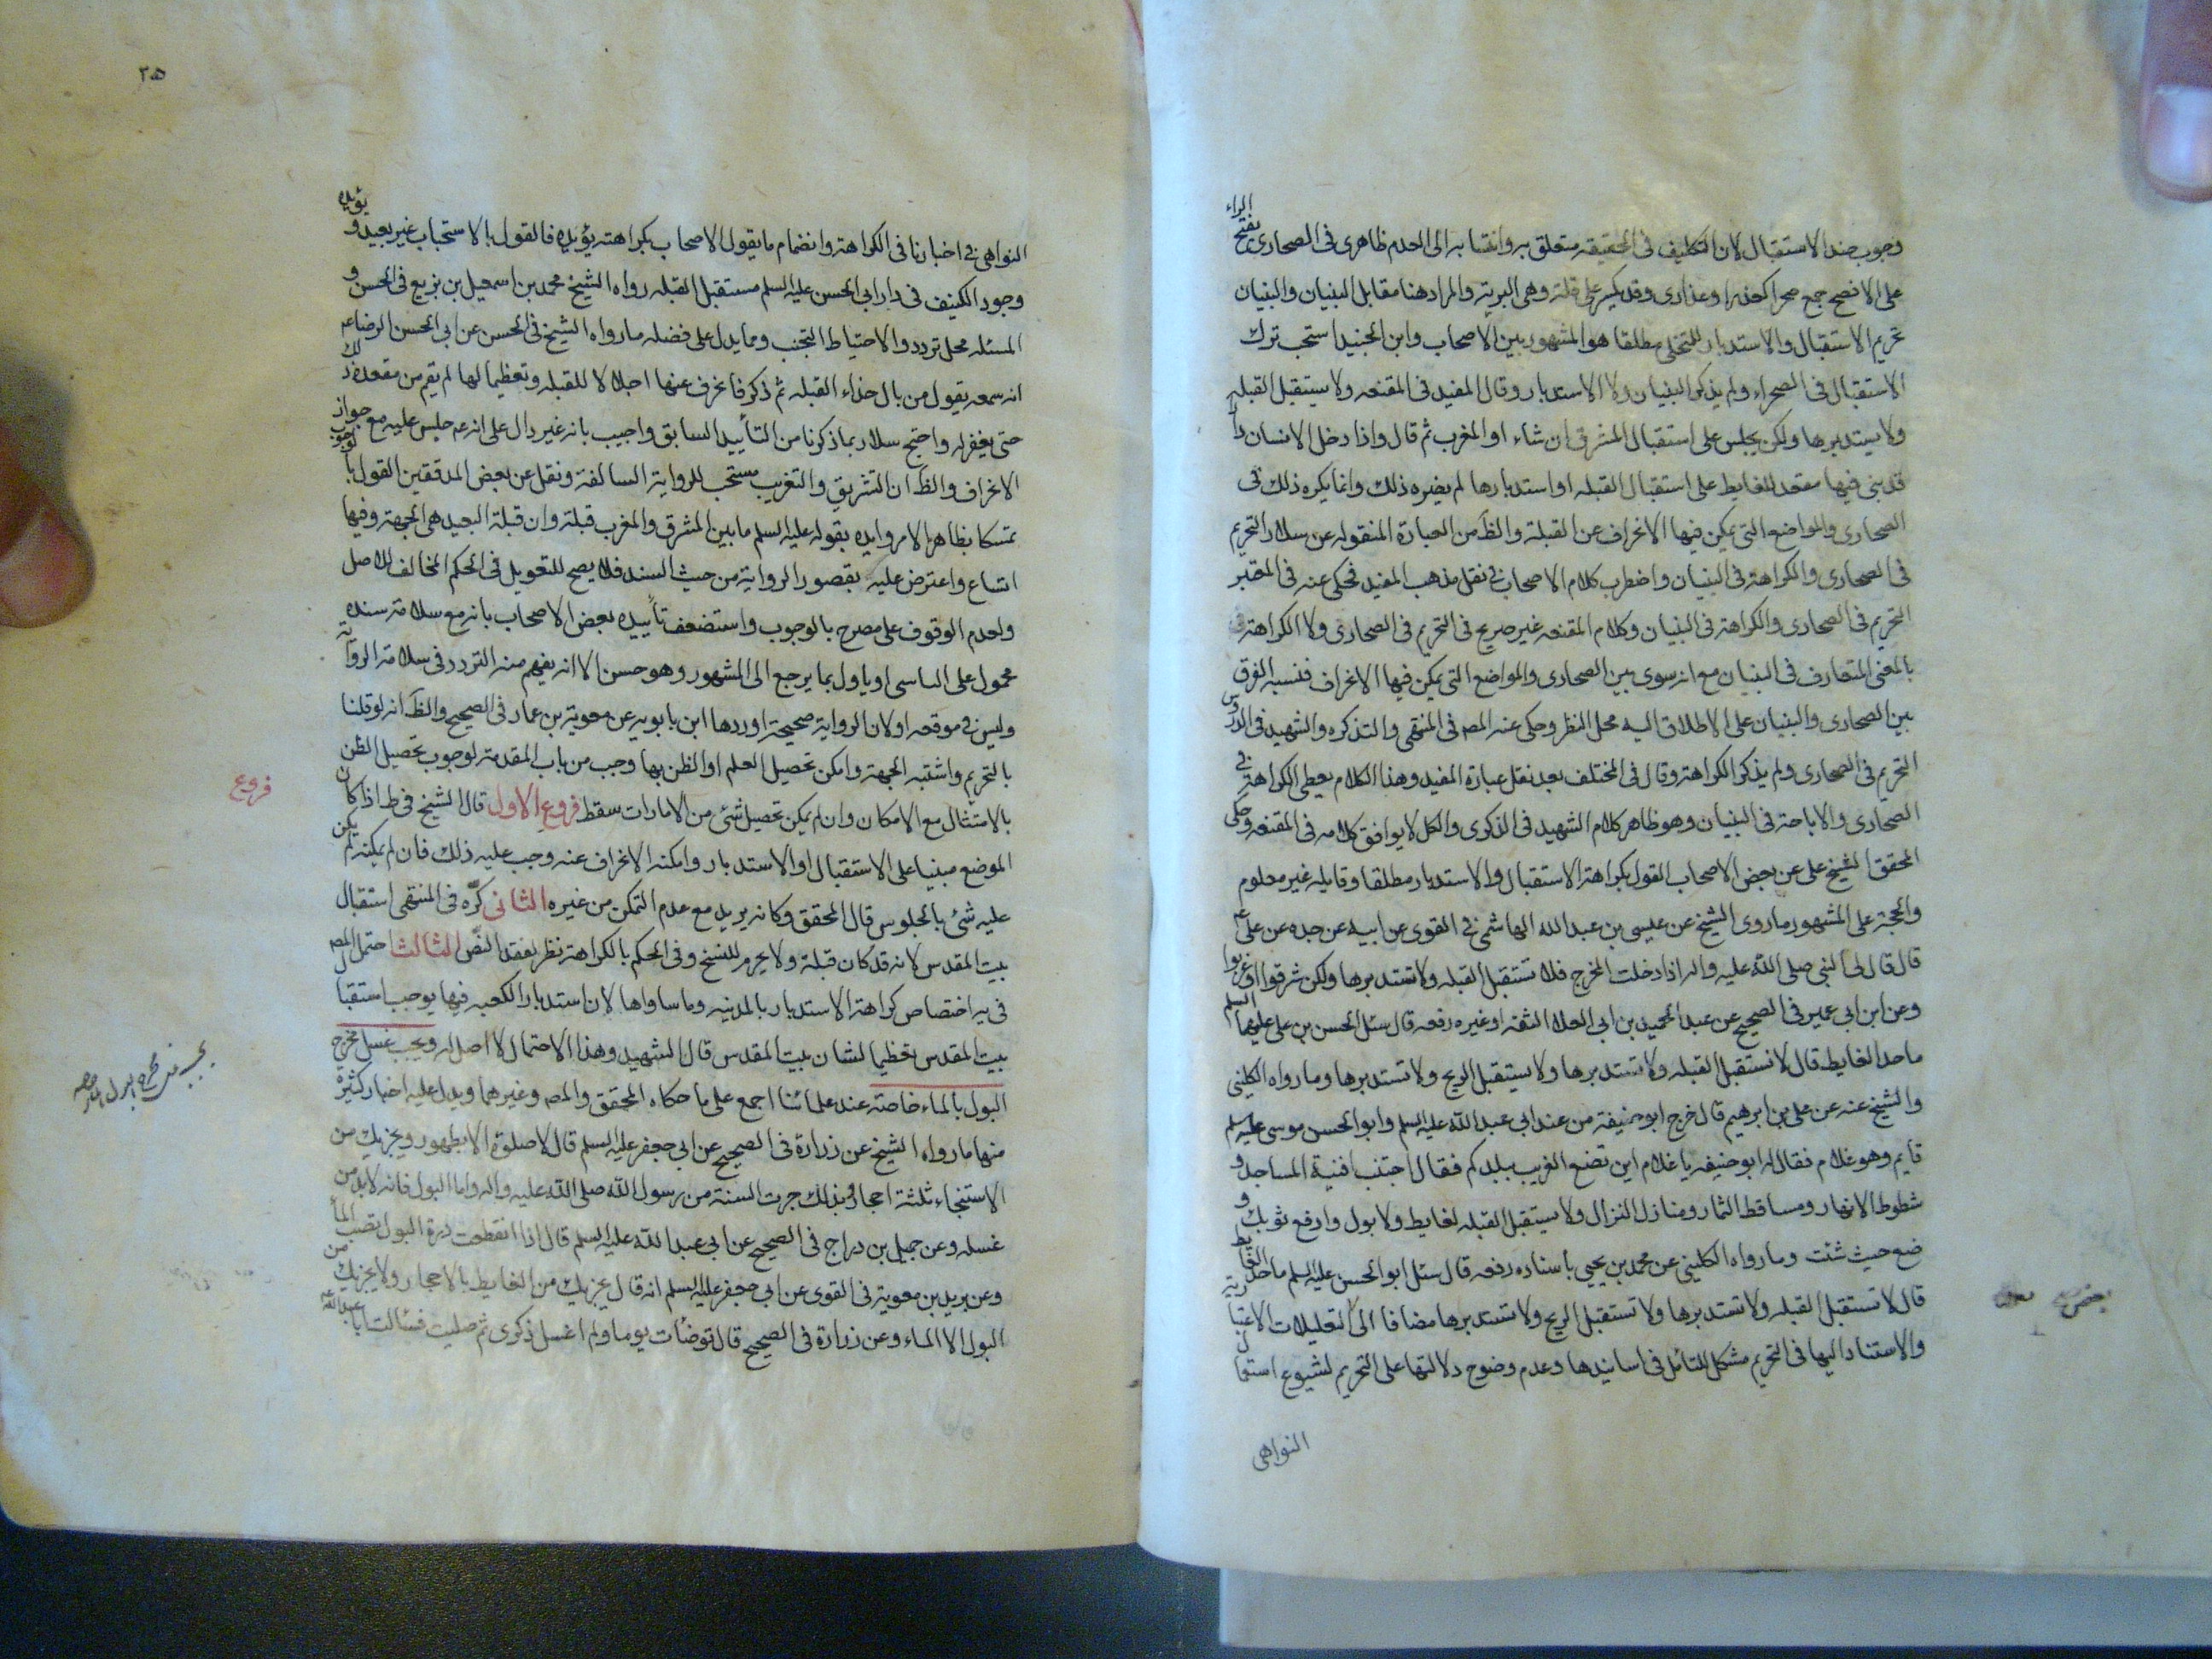 وجوب ضد الاستقبال لان التكليف فى الحقيقه متعلق به وانتسابه الى العدم ظاهرى فى الصحارى بفتح الراء
على الافصح جمع صحرا كعذرا وعذارى وقد يكسر على قلة وهى البرية والمراد هنا مقابل البنيان والبنيان
تحريم الاستقبال والاستدبار للتخلى مطلقا هو المشهور بين الاصحاب وابن الجنيد استحب ترك
الاستقبال فى الصحراء ولم يذكر البنيان ولا الاستدبار وقال المفيد فى المقنعه ولا يستقبل القبله
ولا يستدبرها ولكن يجلس على استقبال المشرق ان شاء او المغرب ثم قال واذا دخل الانسان دارا
قد بنى فيها مقعد للغايط على استقبال القبله او استدبارها لم يضره ذلك وانما يكره ذلك فى
الصحارى والمواضع التى يمكن فيها الانحراف عن القبلة والظ من العبارة المنقوله عن سلار التحريم
فى الصحارى والكراهة فى البنيان واضطرب كلام الاصحاب فى نقل مذهب المفيد فحكى عنه فى المعتبر
التحريم فى الصحارى والكراهة فى البنيان وكلام المقنعه غير صريح فى التحريم فى الصحارى ولا الكراهة
بالمعنى المتعارف فى البنيان مع انه سوى بين الصحارى والمواضع التى يمكن فيها الانحراف فنسبه الفرق
بين الصحارى والبنيان على الاطلاق اليه محل النظر وحكى عنه المصه فى المنتهى والتذكره والشهيد فى الدروس
التحريم فى الصحارى ولم يذكر الكراهة وقال فى المختلف بعد نقل عبارة المفيد وهذا الكلام يعطى الكراهة فى
الصحارى والاباحة فى البنيان وهو ظاهر كلام الشهيد فى الذكرى والكل لا يوافق كلامه فى المقنعه وحكى
المحقق الشيخ على عن بعض الاصحاب القول بكراهة الاستقبال والاستدبار مطلقا وقايله غير معلوم
والحجة على المشهور ما روى الشيخ عن عيسى بن عبد الله الهاشمى فى القوى عن ابيه عن جده عن على ع
قال قال لى النبى صلى الله عليه واله اذا دخلت المخرج فلا تستقبل القبله ولا تستدبرها ولكن شرقوا او غربوا
وعن ابن ابى عمير فى الصحيح عن عبد الحميد بن ابى العلا الثقه او غيره رفعه قال سئل الحسن بن على عليهما السلم
ما حد الغايط قال لا تستقبل القبله ولا تستدبرها ولا يستقبل الريح ولا تستدبرها وما رواه الكلينى
والشيخ عنه عن على بن ابرهيم قال خرج ابو حنيفة من عند ابى عبد الله عليه السلم وابو الحسن موسى عليه السلم
قايم وهو غلام فقال له ابو حنيفه يا غلام اين تضع الغريب ببلدكم فقال اجتنب افنية المساجد و
شطوط الانهار ومساقط الثمار ومنازل النزال ولا يستقبل القبله لغايط ولا بول وارفع ثوبك و
ضع حيث شئت وما رواه الكلينى عن محمد بن يحيى باسناده رفعه قال سئل ابو الحسن عليه السلم ما حد الغايط
قال لا تستقبل القبله ولا تستدبرها ولا تستقبل الريح ولا تستدبرها مضافا الى التعليلات الاعتبارية
والاستناد اليها فى التحريم مشكل للتامل فى اسانيدها وعدم وضوح دلالتها على التحريم لشيوع استعمال
النواهى
بعض
٣٥
النواهى فى اخبارنا فى الكراهة وانضمام ما يقول الاصحاب بكراهته يؤيده فالقول بالاستحباب غير بعيد و يؤيده
وجود الكنيف فى دار ابى الحسن عليه السلم مستقبل القبله رواه الشيخ محمد بن اسمعيل بن بزيع فى الحسن و
المسئله محل تردد والاحتياط التجنب ومما يدل على فضله ما رواه الشيخ فى الحسن عن ابى الحسن الرضا ع
انه سمعه يقول من بال حذاء القبله ثم ذكر فانحرف عنها اجلالا للقبله وتعظيما لها لم يقم من مقعده ذلك
حتى يغفر له واحتج سلار بما ذكرنا من التأييد السابق واجيب بانه غير دال على انه ع جلس عليه مع جواز
الانحراف والظ ان التشريق والتغريب مستحب للرواية السالفة ونقل عن بعض المدققين القول بالوجوب
تمسكا بظاهر الامر وايده بقوله عليه السلم ما بين المشرق والمغرب قبلة وان قبلة البعيد هى الجهة وفيها
اتساع واعترض عليه بقصور الرواية من حيث السند فلا يصح للتعويل فى الحكم المخالف للاصل
ولعدم الوقوف على مصرح بالوجوب واستضعف تأييده بعض الاصحاب بانه مع سلامة سنده
محمول على الناسى او ياول بما يرجع الى المشهور وهو حسن الا انه يفهم منه التردد فى سلامة الرواية
وليس فى موقعه اولا لان الرواية صحيحة اوردها ابن بابويه عن معوية بن عمار فى الصحيح والظ انه لو قلنا
بالتحريم واشتبه الجهة وامكن تحصيل العلم او الظن بها وجب من باب المقدمة لوجوب تحصيل الظن
بالامتثال مع الامكان وان لم يمكن تحصيل شئ من الامارات سقط فروع الاول قال الشيخ فى ط اذا كان
الموضع مبنيا على الاستقبال او الاستدبار وامكنه الانحراف عنه وجب عليه ذلك فان لم يمكنه لم يكن
عليه شئ بالجلوس قال المحقق وكانه يريد مع عدم التمكن من غيره الثانى كره فى المنتهى استقبال
بيت المقدس لانه قد كان قبلة ولا يحرم للنسخ وفى الحكم بالكراهة نظر لفقد النص الثالث احتمل المصه
فى يه اختصاص كراهة الاستدبار بالمدينه وما ساواها لان استدبار الكعبه فيها يوجب استقبال
بيت المقدس تعظيما لشان بيت المقدس قال الشهيد وهذا الاحتمال لا اصل له ويجب غسل مخرج
البول بالماء خاصة عند علمائنا اجمع على ما حكاه المحقق والمصه وغيرهما ويدل عليه اخبار كثيرة
منها ما رواه الشيخ عن زرارة فى الصحيح عن ابى جعفر عليه السلم قال لا صلوة الا بطهور ويجزيك من
الاستنجاء ثلثة احجار بذلك جرت السنة من رسول الله صلى الله عليه واله واما البول فانه لا بد من
غسله وعن جميل بن دراج فى الصحيح عن ابى عبد الله عليه السلم قال اذا انقطعت درة البول فصب الماء
وعن بريد بن معوية فى القوى عن ابى جعفر عليه السلم انه قال يجزيك من الغايط بالاحجار ولا يجزيك من
البول الا الماء وعن زرارة فى الصحيح قال توضأت يوما ولم اغسل ذكرى ثم صليت فسالت ابا عبد الله ع
فروع